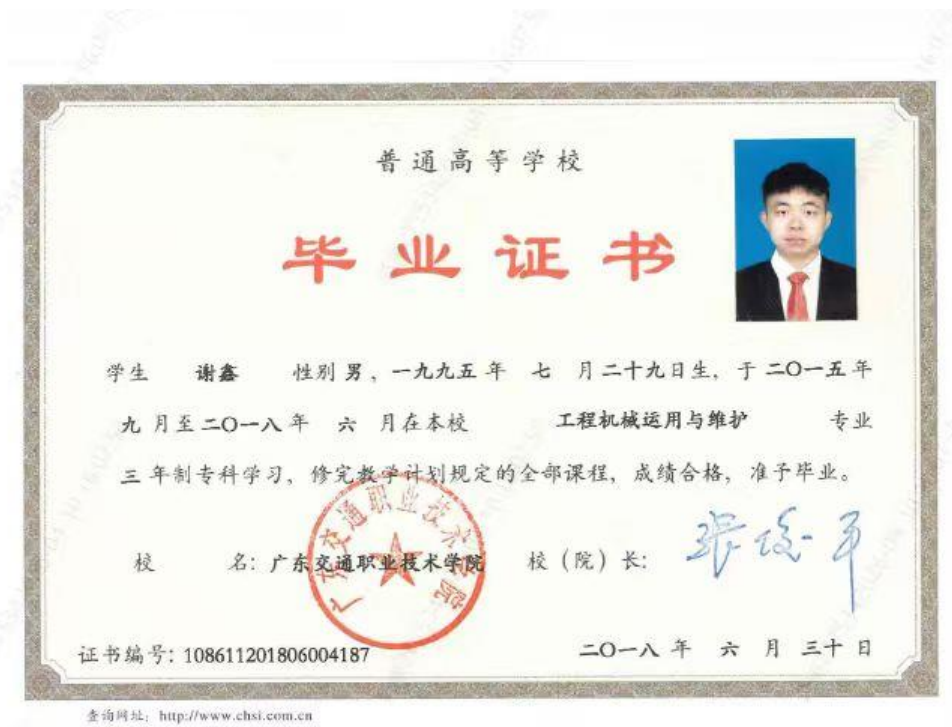 普通高等学校
毕业证书
学生 谢鑫 性别 男，一九九五 年 七 月 二十九日生，于 二〇一五 年
九 月至 二〇一八 年 六 月在本校 工程机械运用与维护 专业
三 年制专科学习，修完教学计划规定的全部课程，成绩合格，准予毕业。
广东交通职业技术学院
校 名：广东交通职业技术学院 校（院）长：张俊平
证书编号：108611201806004187 二〇一八 年 六 月 三十 日
查询网址：http://www.chsi.com.cn